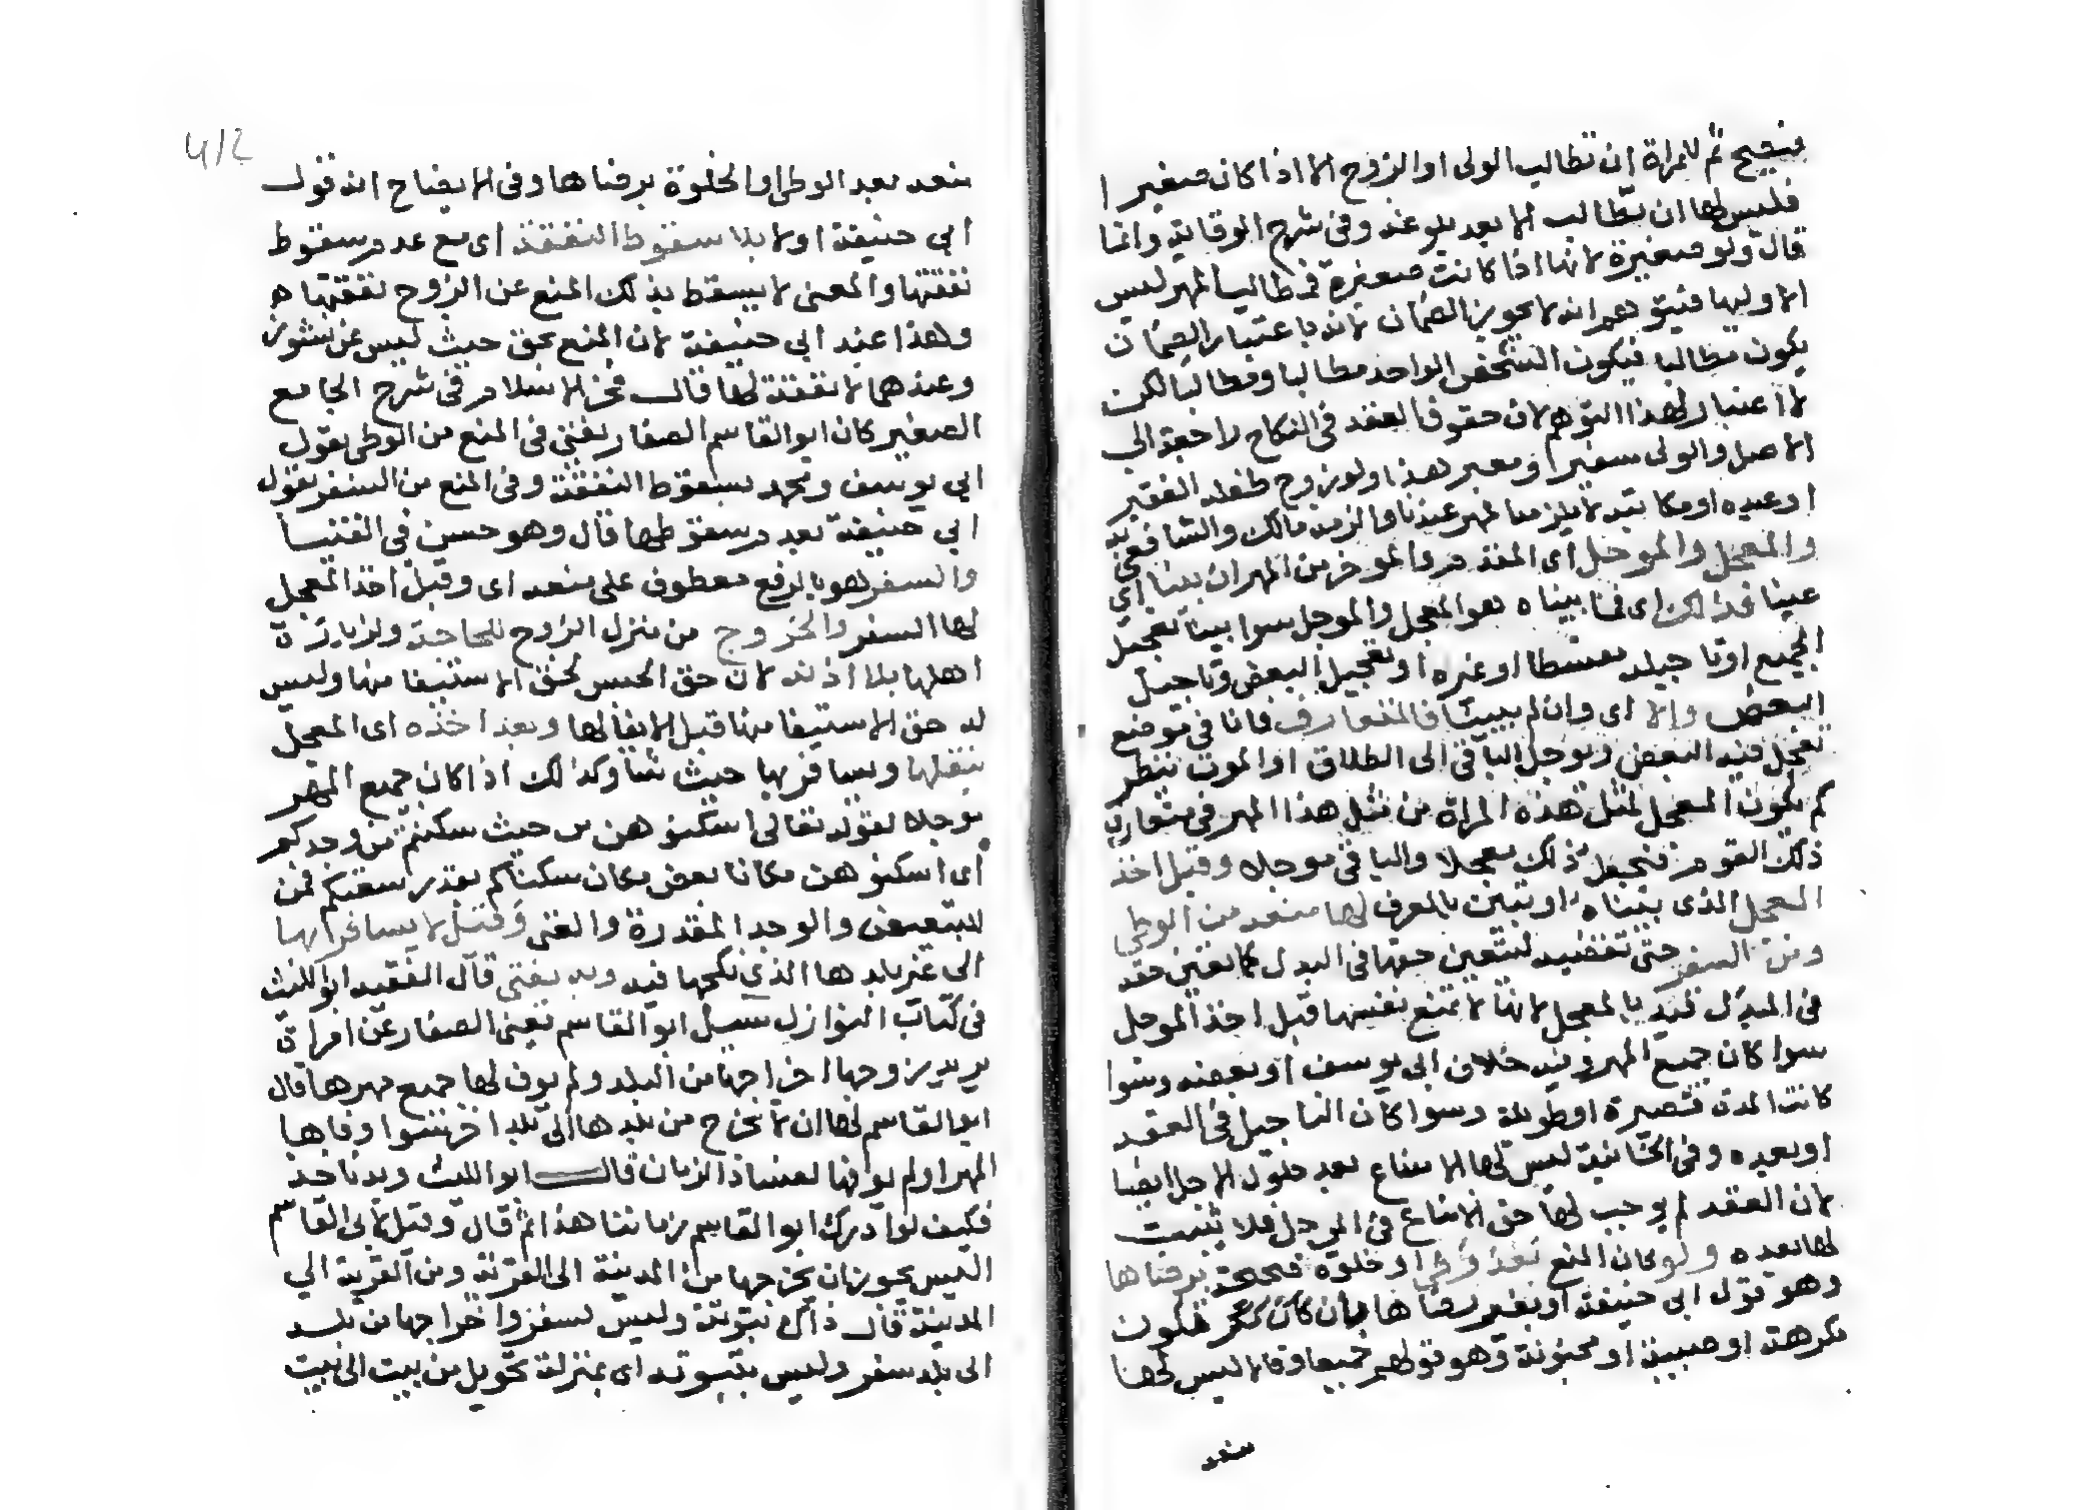 فيصح ثم للمراة ان تطالب الولى او الزوج الا اذا كان صغيرا
فليس لها ان تطالب الا بعد بلوغه وفى شرح الوقاية وانما
قال ولو صغيرة لانها اذا كانت صغيرة فطالب المهر ليس
الا وليها فيتوهم انه لا يجوز الضمان لانه باعتبار الضمان
يكون مطالبا فيكون الشخص الواحد مطالبا ومطالبا لكن
لا اعتبار لهذا التوهم لان حقوق العقد فى النكاح راجعة الى
الاصل والولى سفيرا ومعبر هذا ولو زوج طفله الفقير
او عبده او مكاتبه لا يلزمنا لمهر عندنا والزمه مالك والشافعى به
والمعجل والموجل اى المقدم والموخر من المهر ان بينا اى
عينا فذلك اى فما بيناه هو المعجل والموجل سوا بينا تعجيل
الجميع او تاجيله مقسطا او غيره او تعجيل البعض وتاجيل
البعض والا اى وان لم يبينا فالمتعارف فانا فى موضع
تعجل فيه البعض ويوجل الباقى الى الطلاق او الموت ننظر
كم يكون المعجل لمثل هذه المراة من مثل هذا المهر فى متعارف
ذلك القوم فنجعل ذلك معجلا والباقى موجلا وقبل اخذ
المعجل الذى بيناه او تبين بالعرف لها منعه من الوطى
ومن السفر حتى تقضيه لتتعين حقها فى البدل كما تعين حقه
فى المبدل قيد بالمعجل لانها لا تمنع نفسها قبل اخذ الموجل
سوا كان جميع المهر وفيه خلاف ابى يوسف او بعضه وسوا
كانت المدة قصيرة او طويلة وسوا كان التاجيل فى العقد
او بعده وفى الخانية ليس لها الامتناع بعد حلول الاجل ايضا
لان العقد لم يوجب لها حق الامتناع فى الموجل فلا يثبت
لها بعده ولو كان المنع بعد وطى او خلوة صحيحة برضاها
وهو قول ابى حنيفة او بغير رضاها بان كان فتكون
مكرهة او صبية او مجنونة وهو قولهم جميعا وقالا ليس لها
منعه
منعه بعد الوطى او الخلوة برضاها وفى الايضاح انه قول
ابى حنيفة اولا بلا سقوط النفقة اى مع عدم سقوط
نفقتها والمعنى لا يسقط بذلك المنع عن الزوج نفقتها
وهذا عند ابى حنيفة لان المنع بحق حيث ليس عن نشوز
وعندهما لا نفقة لها قال فخر الاسلام فى شرح الجامع
الصغير كان ابو القاسم الصفار يفتى فى المنع من الوطى بقول
ابى يوسف ومحمد بسقوط النفقة وفى المنع من السفر بقول
ابى حنيفة بعدم سقوطها قال وهو حسن فى الفتيا
والسفر هو بالرفع معطوف على منعه اى وقبل اخذ المعجل
لها السفر والخروج من منزل الزوج للحاجة ولزيارة
اهلها بلا اذنه لان حق الحبس لحق الاستيفا منها وليس
له حق الاستيفا منها قبل الايفا لها وبعد اخذه اى المعجل
ينقلها ويسافر بها حيث شا وكذلك اذا كان جميع المهر
موجلا لقوله تعالى اسكنوهن من حيث سكنتم من وجدكم
اى اسكنوهن مكانا بعض مكان سكناكم بقدر سعتكم فمن
للتبعيض والوجد المقدرة والغنى وقيل لا يسافر بها
الى غير بلدها الذى نكحها فيه وبه يفتى قال الفقيه ابو الليث
فى كتاب النوازل سيل ابو القاسم يعنى الصفار عن امراة
يريد زوجها اخراجها من البلد ولم يوف لها جميع مهرها قال
ابو القاسم لها ان لا تخرج من بلدها الى بلد اخر سوا وفاها
المهر او لم يوفها لفساد الزمان قال ابو الليث وبه ناخذ
فكيف لو ادرك ابو القاسم زماننا هذا ثم قال وقيل لابى القاسم
اليس يجوز ان يخرجها من المدينة الى القرية ومن القرية الى
المدينة قال ذاك تبوية وليس بسفر واخراجها من بلد
الى بلد سفر وليس بتبوية اى بمنزلة تحويل من بيت الى بيت